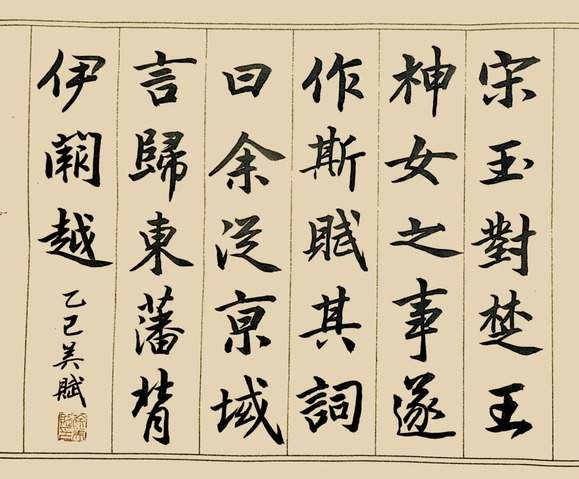 宋玉對楚王
神女之事遂
作斯賦其詞
曰余從京域
言歸東藩背
伊闕越
乙巳美賦